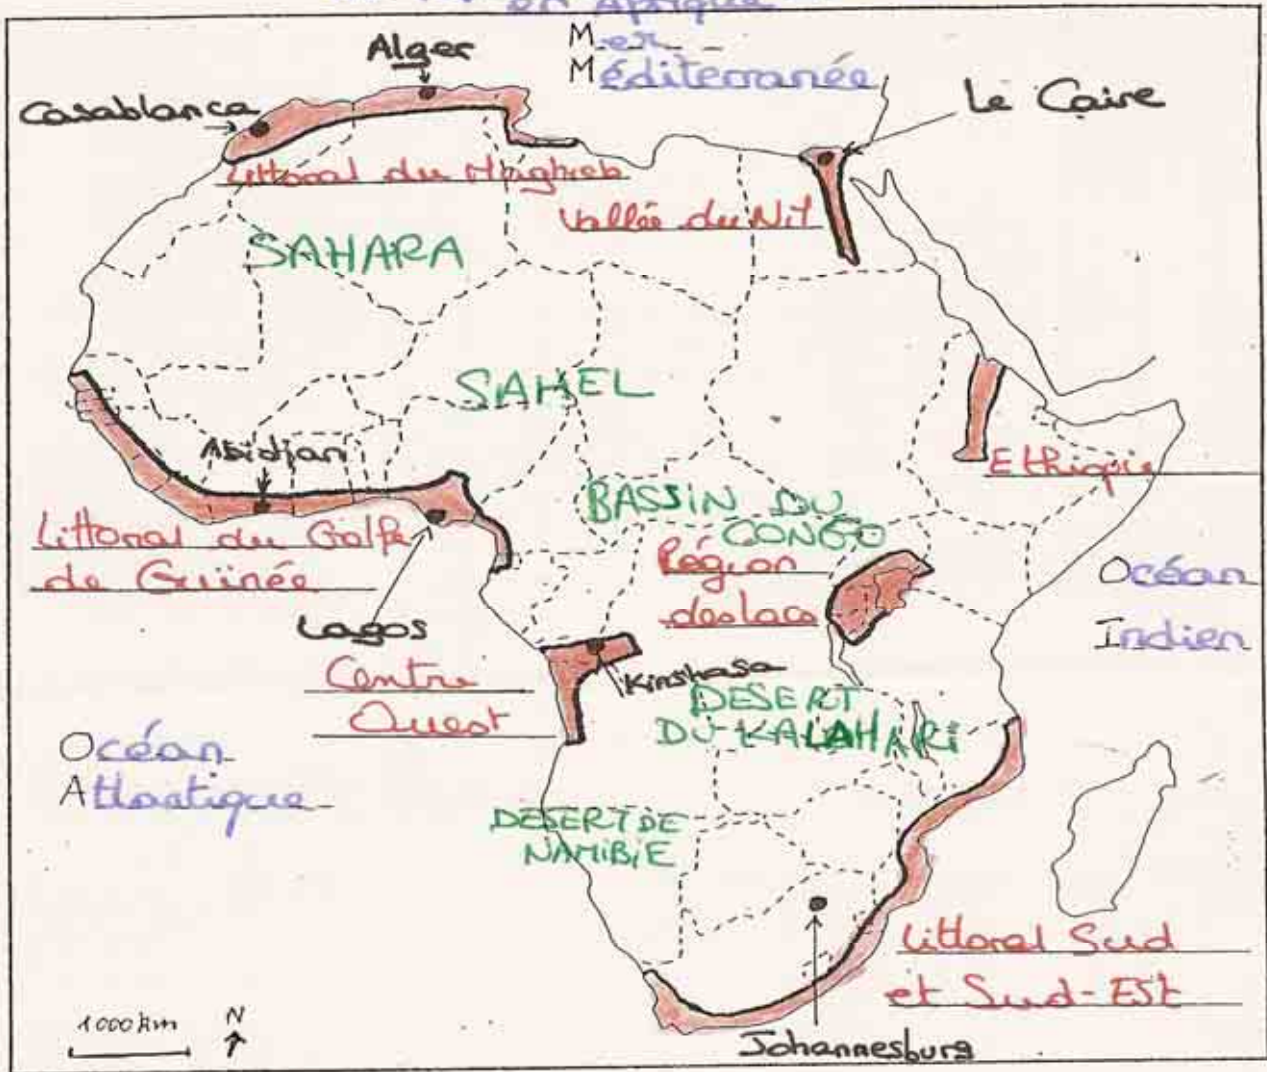 en Afrique
Mer
Méditerranée
Alger
Casablanca
Le Caire
Littoral du Maghreb
Vallée du Nil
SAHARA
SAHEL
Abidjan
Ethiopie
BASSIN DU
CONGO
Littoral du Golfe
de Guinée
Région
des lacs
Océan
Indien
Lagos
Centre
Ouest
Kinshasa
DESERT
DU KALAHARI
Océan
Atlantique
DESERT DE
NAMIBIE
Littoral Sud
et Sud-Est
1000 km
N
Johannesburg